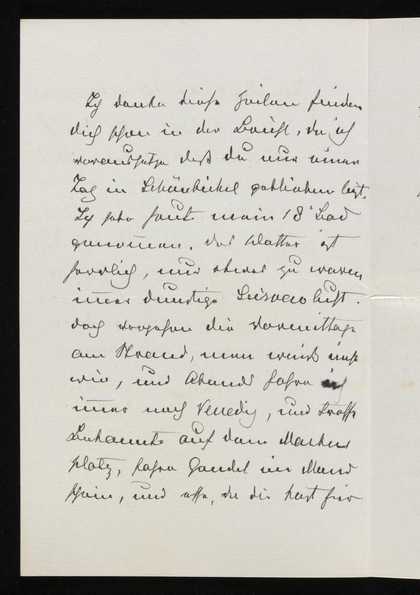 Ich denke diese Zeilen finden
dich schon in der Brühl, da ich
voraussetze daß du nur einen
Tag in Schönbichel geblieben bist.
Ich habe heute mein 18' Bad
genommen. das Wetter ist
herrlich, nur etwas zu warm
immer dunstige Sciroccoluft.
doch vergehen die Vormittage
am Strand, man weiß nicht
wie, und Abends fahre ich
immer nach Venedig, und treffe
Bekannte auf dem Markus
platz, fahre Gondel im Mond
schein, und esse, da die Kost hier